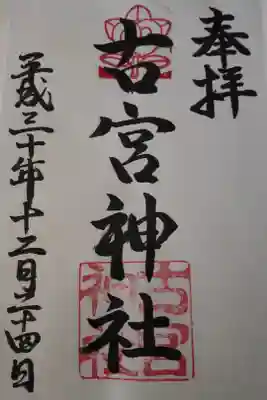 奉拝
古宮神社
古宮神社
平成三十年十二月二十四日